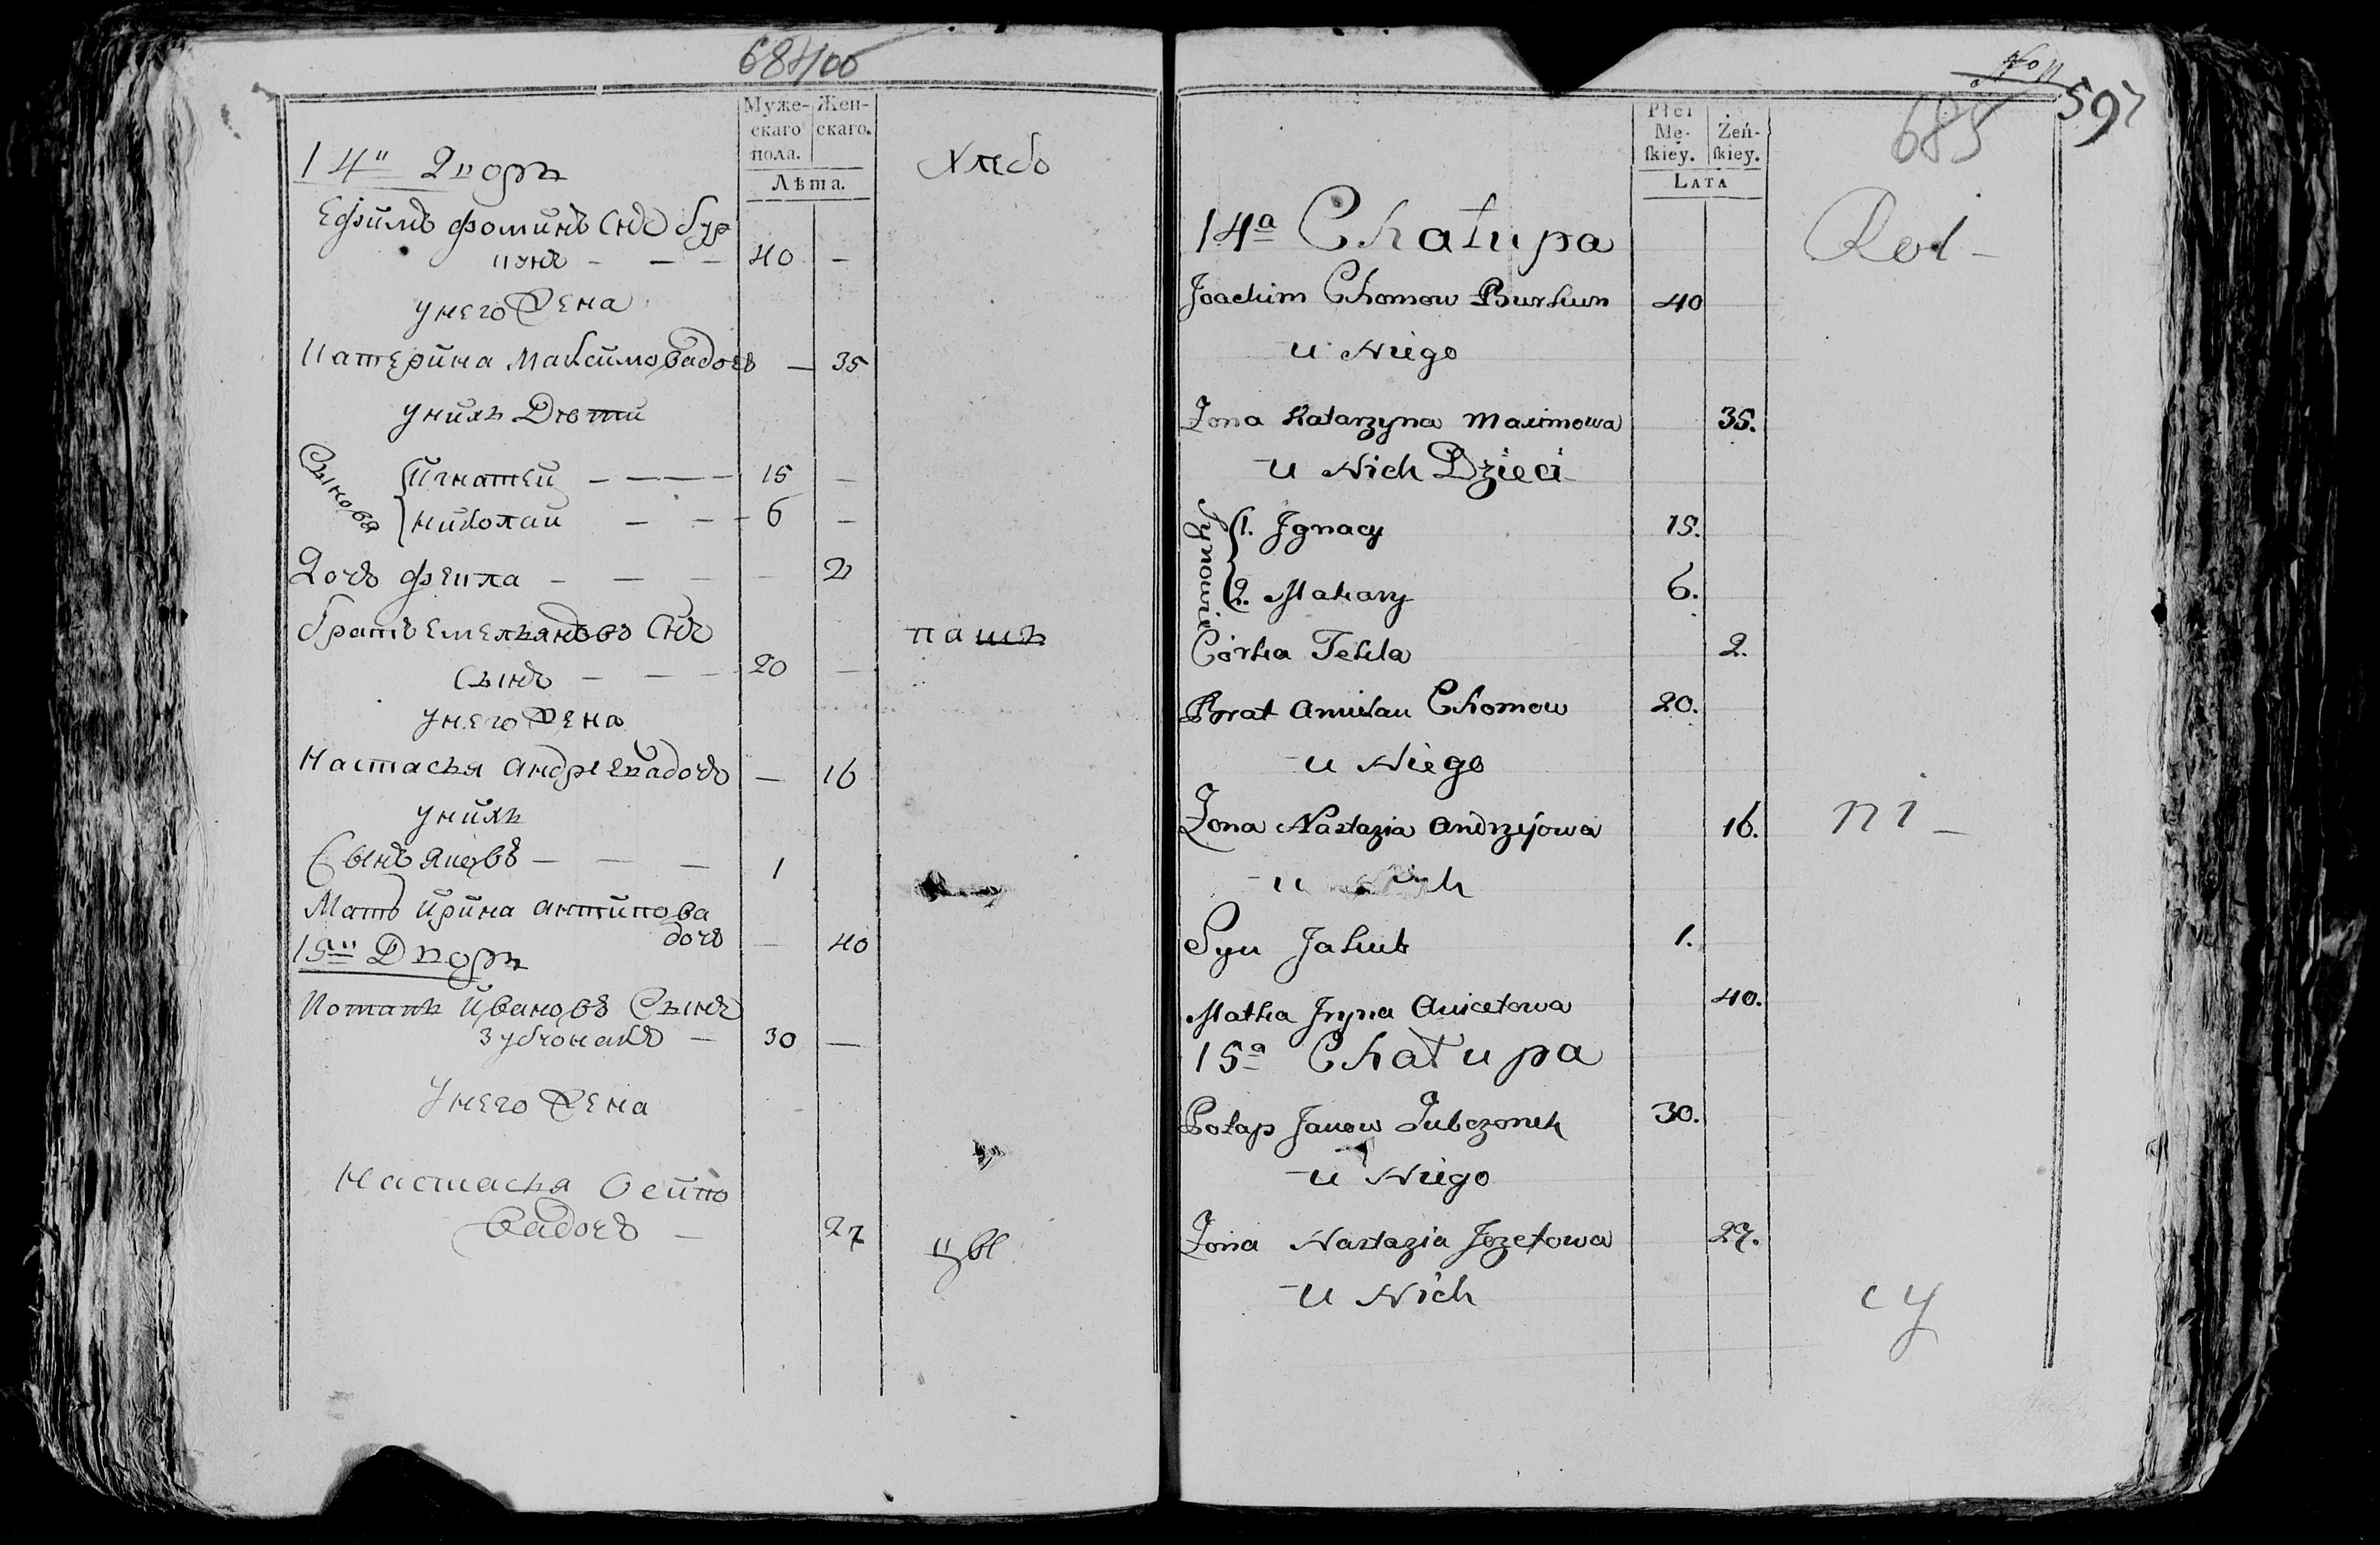 684/100
Муже-
скаго
пола.
Жен-
скаго.
Лѣта.
14й Дворъ
Хлебо
Ефимъ Фоминъ Снъ Бур
кунъ - - - 40 -
у него Жена
Катерина Максимова дочь - 35
у нихъ Дѣти
Сыновя
Игнатей - - - - 15 -
Николай - - - 6 -
Дочь Фекла - - - - 2
Братъ Емельяновъ Снъ
паше
Сынъ - - - 20 -
у него Жена
Настасья Андреева дочь - 16
у нихъ
Сынъ Яковъ - - - 1
Мать Ирина Антипова
дочь - 40
15й Дворъ
Потапъ Ивановъ Сынъ
Зубчонакъ - 30 -
У него Жена
Настасья Осипо
вадочь - 27
цы
No 11
597
685
Płci
Mę-
ſkiey.
Żeń-
ſkiey.
LATA
14a Chałupa
Rol-
Joachim Chomow Burkun 40
u Niego
Żona Katarzyna Maximowa 35.
u Nich Dzieci
Synowie
1. Jgnacy 15.
2. Makary 6.
Córka Tekla 2.
Brat Amilau Chomow 20.
u Niego
Żona Nastazia Andrzejowa 16.
ni-
u Nich
Syn Jakub 1.
Matka Jryna Anicetowa 40.
15a Chałupa
Potap Janow Zubczonek 30.
u Niego
Żona Nastazia Jozefowa 27.
u Nich
cy